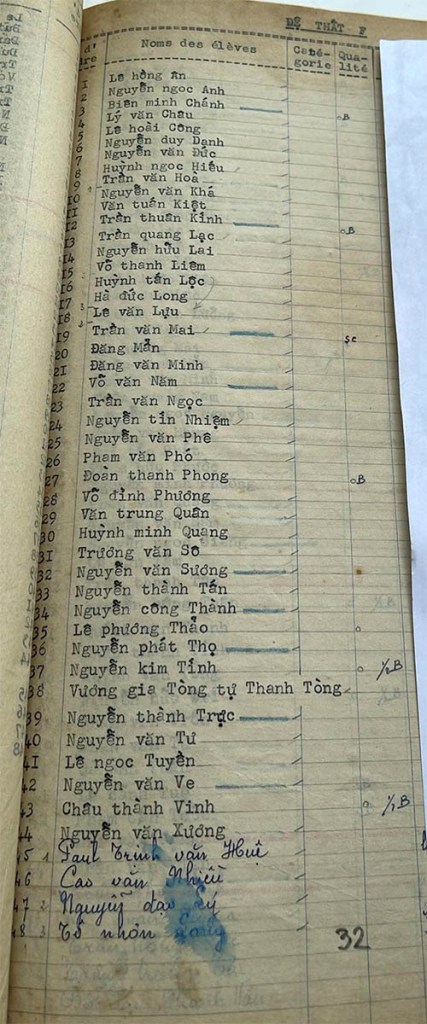 ĐỆ THẤT F
d' Noms des élèves Caté- Qua-
gorie lité
1 Lê hồng Ân
2 Nguyễn ngọc Anh
3 Biên minh Chánh
4 Lý văn Châu B
5 Lê hoài Công
6 Nguyễn duy Danh
7 Nguyễn văn Đức
8 Huỳnh ngọc Hiếu
9 Trần văn Hoà
10 Nguyễn văn Khá
11 Văn tuấn Kiệt
12 Trần thuần Kỉnh
13 Trần quang Lạc B
14 Nguyễn hữu Lai
15 Võ thanh Liêm
16 Huỳnh tấn Lộc
17 Hà đức Long
18 Lê văn Lựu
19 Trần văn Mai sc
20 Đặng Mẫn
21 Đặng văn Minh
22 Võ văn Năm
23 Trần văn Ngọc
24 Nguyễn tín Nhiệm
25 Nguyễn văn Phê
26 Phạm văn Phó
27 Đoàn thanh Phong B
28 Võ đình Phương
29 Văn trung Quân
30 Huỳnh minh Quang
31 Trương văn Sô
32 Nguyễn văn Sương
33 Nguyễn thành Tấn
34 Nguyễn công Thành
35 Lê phương Thảo
36 Nguyễn phát Thọ
37 Nguyễn kim Tính ½B
38 Vương gia Tòng tự Thanh Tòng
39 Nguyễn thành Trực
40 Nguyễn văn Tư
41 Lê ngọc Tuyền
42 Nguyễn văn Ve
43 Châu thành Vinh ½B
44 Nguyễn văn Xương
45 1 Paul Trịnh văn Huệ
46 Cao văn Nhiều
47 2 Nguyễn đạo Lý
48 3 Tô nhơn
32